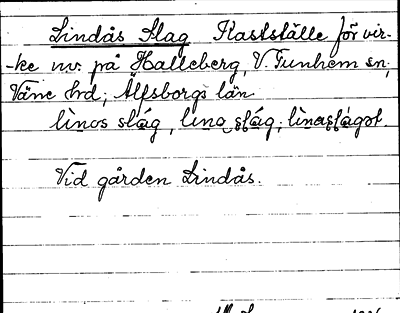 Lindås Slag Kastställe för vir-
-ke nv. på Halleberg, V. Tunhem sn,
Väne hd, Älfsborgs län
linos slág, lino slág, linaslágət.
Vid gården Lindås.